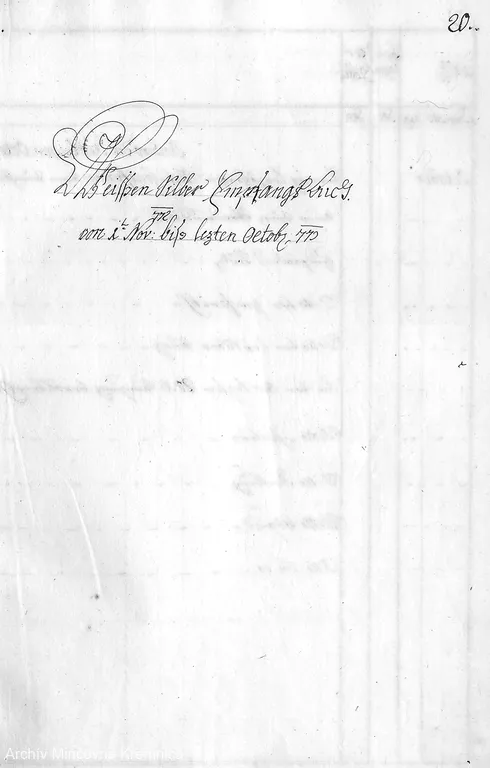 20.
Weissen Silber Empfangs buch
von 1t Nov: bis lezten Octob
Archiv Mincovne Kremnica